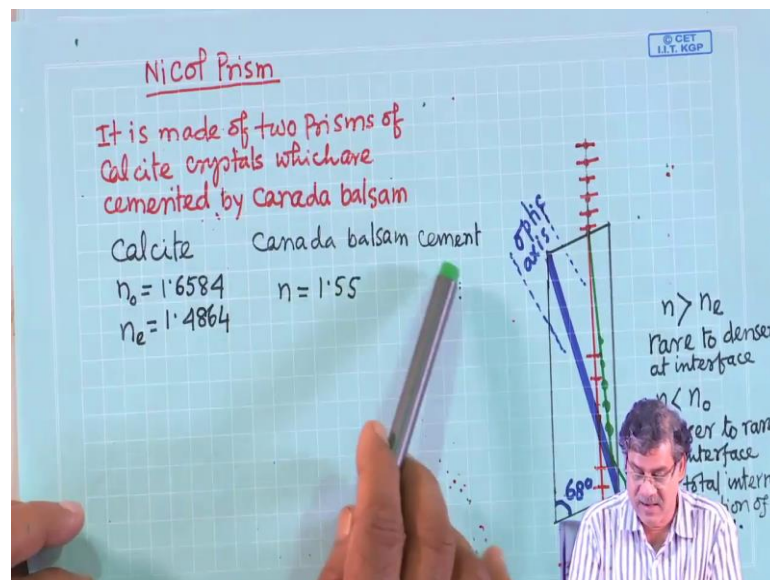 © CET
I.I.T. KGP
Nicol Prism
It is made of two Prisms of
Calcite crystals which are
cemented by Canada balsam
Calcite
Canada balsam cement
n₀ = 1.6584
n = 1.55
nₑ = 1.4864
optic
axis
68°
n > nₑ
rare to denser
at interface
n < n₀
to rar
interface
total intern
of